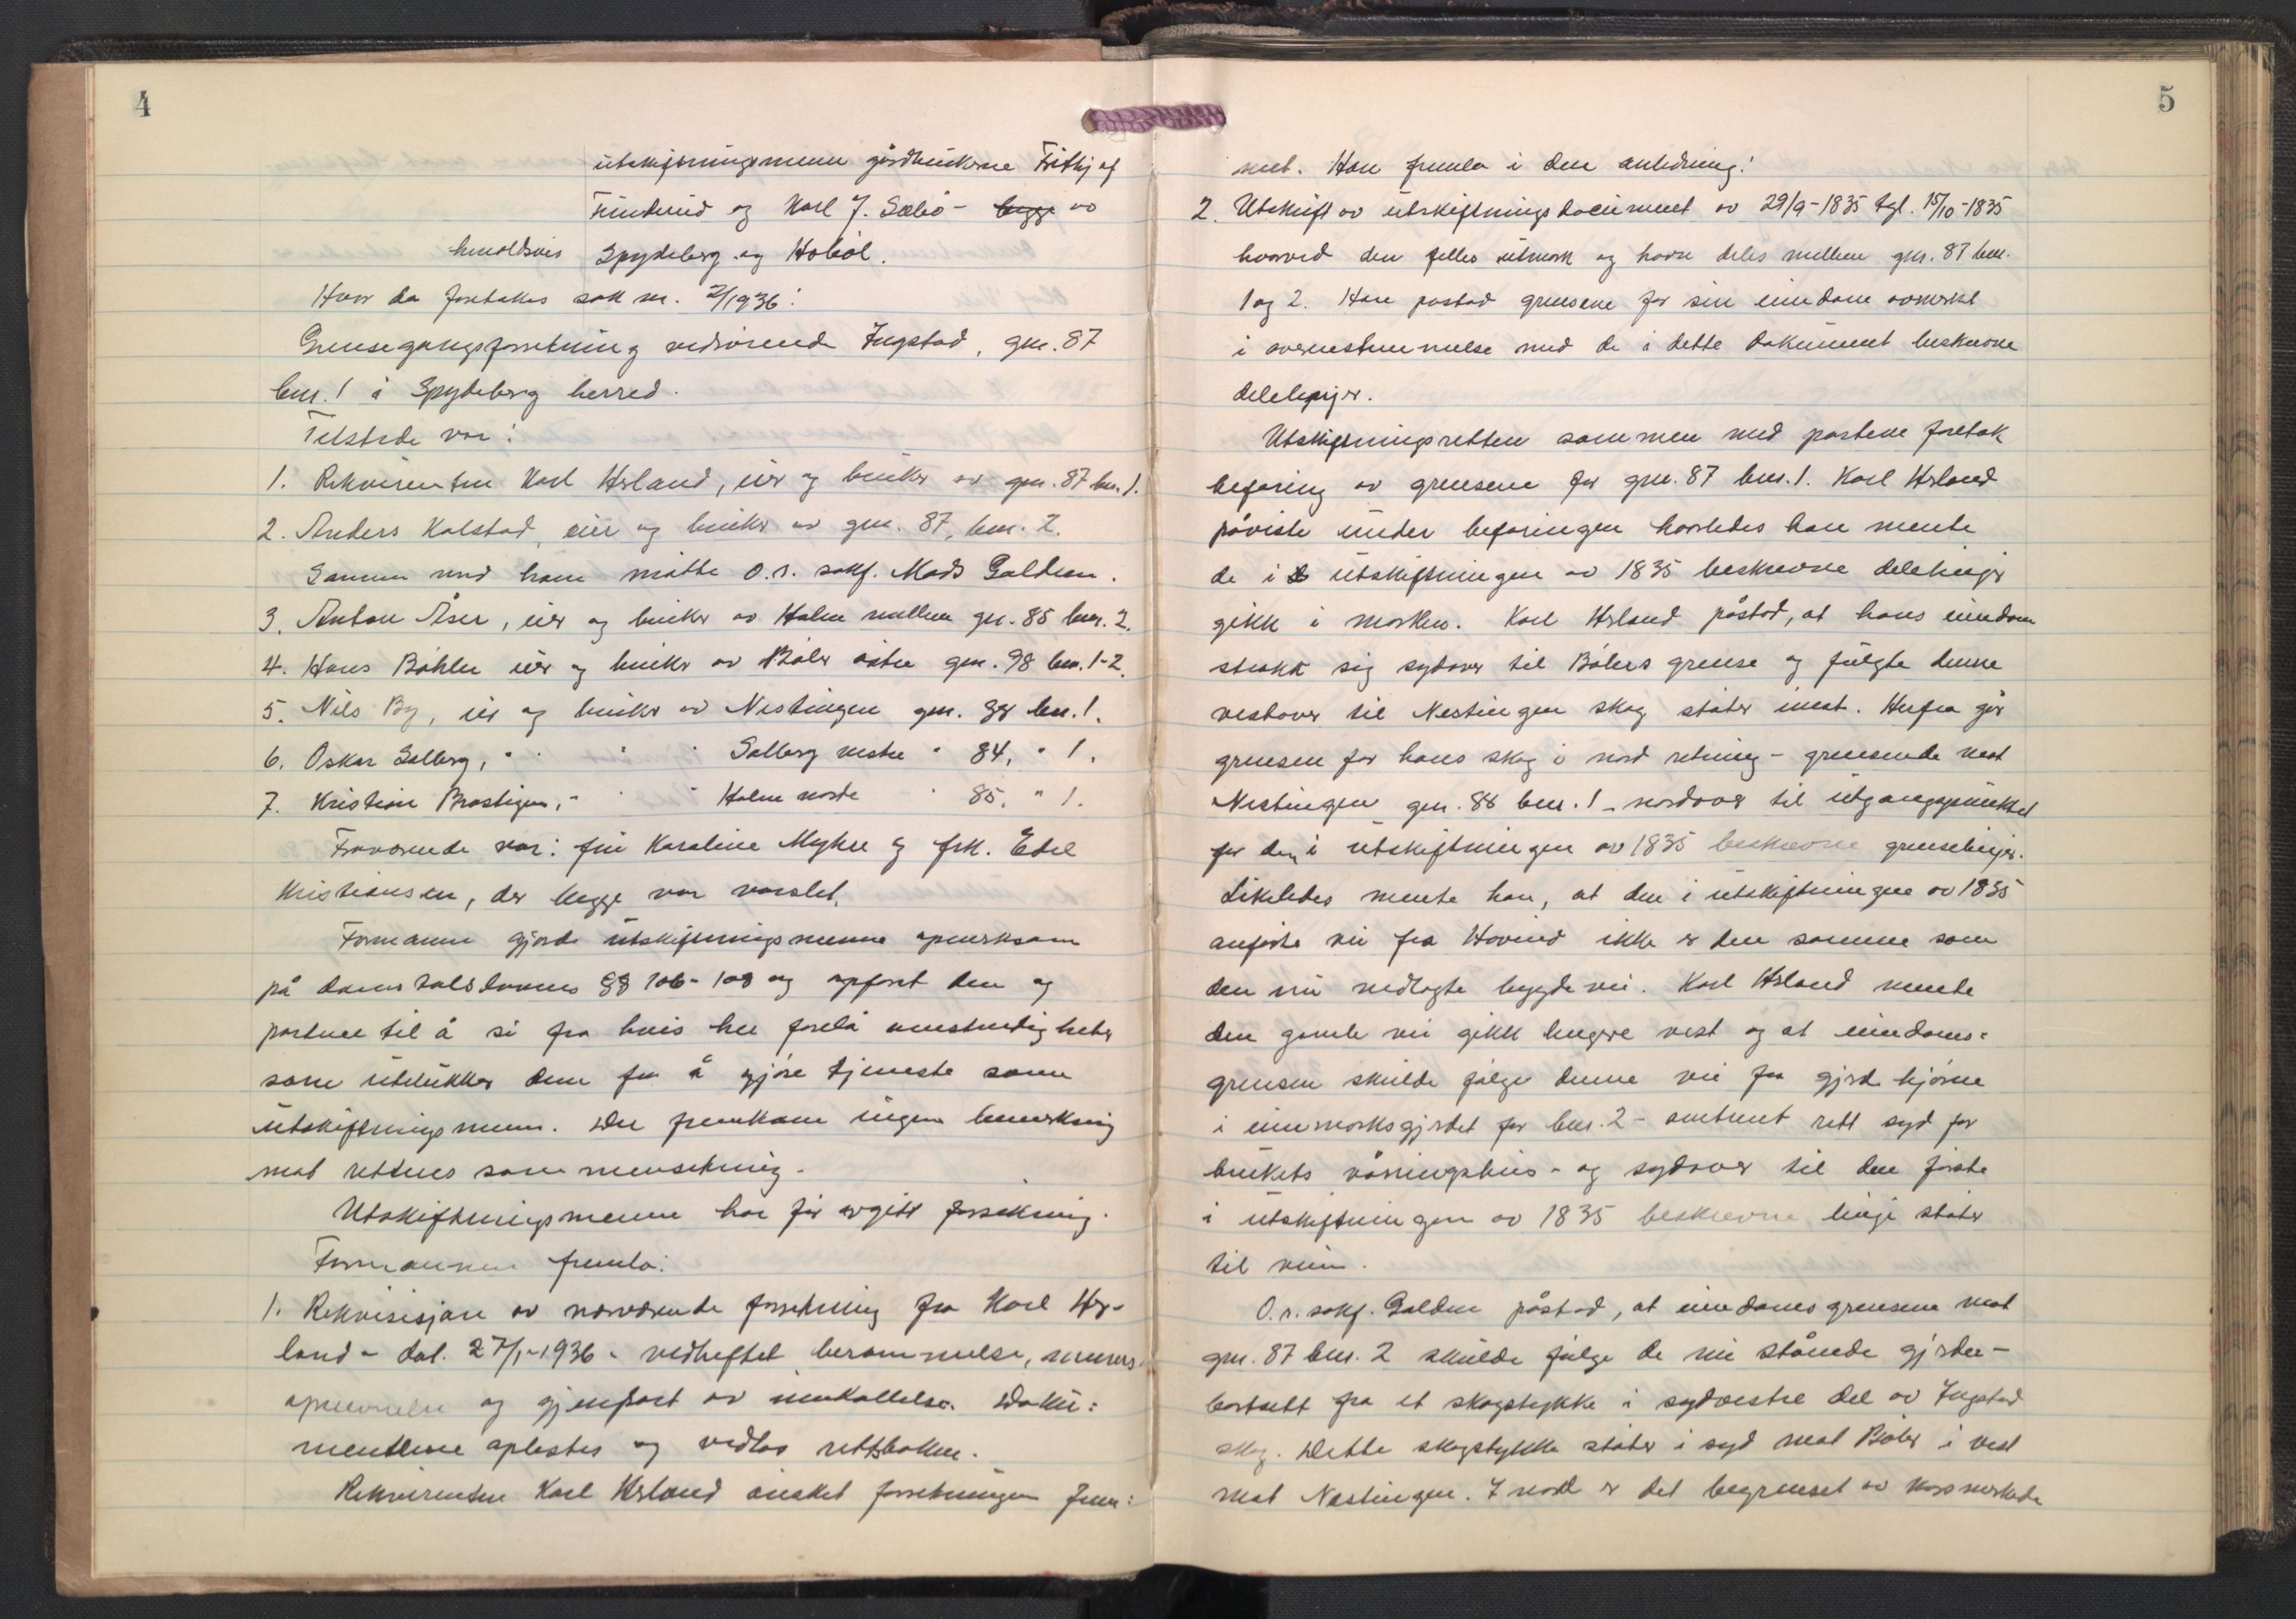 4
utskiftningsmenn gårdbrukerne Frithjof
Finderud og Karl J. Sæbø - begge av
henholdsvis Spydeberg og Hobøl.
Hvor da foretokes sak nr. 2/1936:
Grensegangsforretning vedrørende Ingstad, gnr. 87
bnr. 1 i Spydeberg herred.
Tilstede var:
1. Rekvirenten Karl Hsland, eier og bruker av gnr. 87 bnr. 1.
2. Anders Kalstad, eier og bruker av gnr. 87, bnr. 2.
Sammen med ham møtte o.r. sakf. Mads Galdem.
3. Anton Åser, eier og bruker av Holm mellem gnr. 85 bnr. 2.
4. Hans Bøhler eier og bruker av Bøler østre gnr. 98 bnr. 1-2.
5. Nils By, eier og bruker av Nestingen gnr. 88 bnr. 1.
6. Oskar Solberg, " " " Solberg vestre " 84, " 1.
7. Kristian Brostigen, " " " Holm nordre " 85, " 1.
Fraværende var: fru Karoline Myhre og frk. Edel
Kristiansen, der begge var varslet.
Formannen gjorde utskiftningsmennene opmerksom
på domstolslovens §§ 106-108 og opfordret dem og
partene til å si fra hvis her forelå omstendigheter
som utelukker dem fra å gjøre tjeneste som
utskiftningsmenn. Der fremkom ingen bemerkning
mot rettens sammensetning.
Utskiftningsmennene har før avgitt forsikring.
Formannen fremla:
1. Rekvisisjon av nærværende forretning fra Karl Hs-
land - dat. 27/1-1936 - vedheftet berammelse, menns-
opnevnelse og gjenpart av innkallelse. Doku=
mentene oplestes og vedlas rettsboken.
Rekvirenten Karl Hsland ønsket forretningen frem=
5
met. Han fremla i den anledning:
2. Utskrift av utskiftningsdocument av 29/9-1835 tgl. 15/10-1835
hvorved den felles utmark og havn deles mellem gnr. 87 bnr.
1 og 2. Han påstod grensene for sin eiendom avmerket
i overensstemmelse med de i dette dokument beskrevne
delelinjer.
Utskiftningsretten sammen med partene foretok
befaring av grensene for gnr. 87 bnr. 1. Karl Hsland
påviste under befaringen hvorledes han mente
de i utskiftningen av 1835 beskrevne delelinjer
gikk i marken. Karl Hsland påstod, at hans eiendom
strakk sig sydover til Bølers grense og fulgte denne
vestover til Nestingen skog støter imot. Herfra går
grensen for hans skog i nord retning - grensende mot
Nestingen gnr. 88 bnr. 1 - nordover til utgangspunktet
for den i utskiftningen av 1835 beskrevne grenselinje.
Likeledes mente han, at den i utskiftningen av 1835
anførte vei fra Hovind ikke er den samme som
den nu nedlagte bygdevei. Karl Hsland mente
den gamle vei gikk lengere vest og at eiendoms=
grensen skulde følge denne vei fra gjerdehjørne
i innmarksgjerdet for bnr. 2 - omtrent rett syd for
brukets våningshus - og sydover til den første
i utskiftningen av 1835 beskrevne linje støter
til veien.
O.r. sakf. Galdem påstod, at eiendomsgrensene mot
gnr. 87 bnr. 2 skulde følge de nu stående gjerder -
bortsett fra et skogstykke i sydvestre del av Ingstad
skog. Dette skogstykke støter i syd mot Bøler i vest
mot Nestingen. I nord er det begrenset av korsmerkede